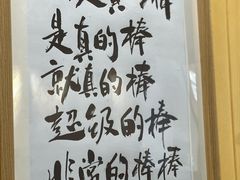 是真的棒
就真的棒
超级的棒
非常的棒棒